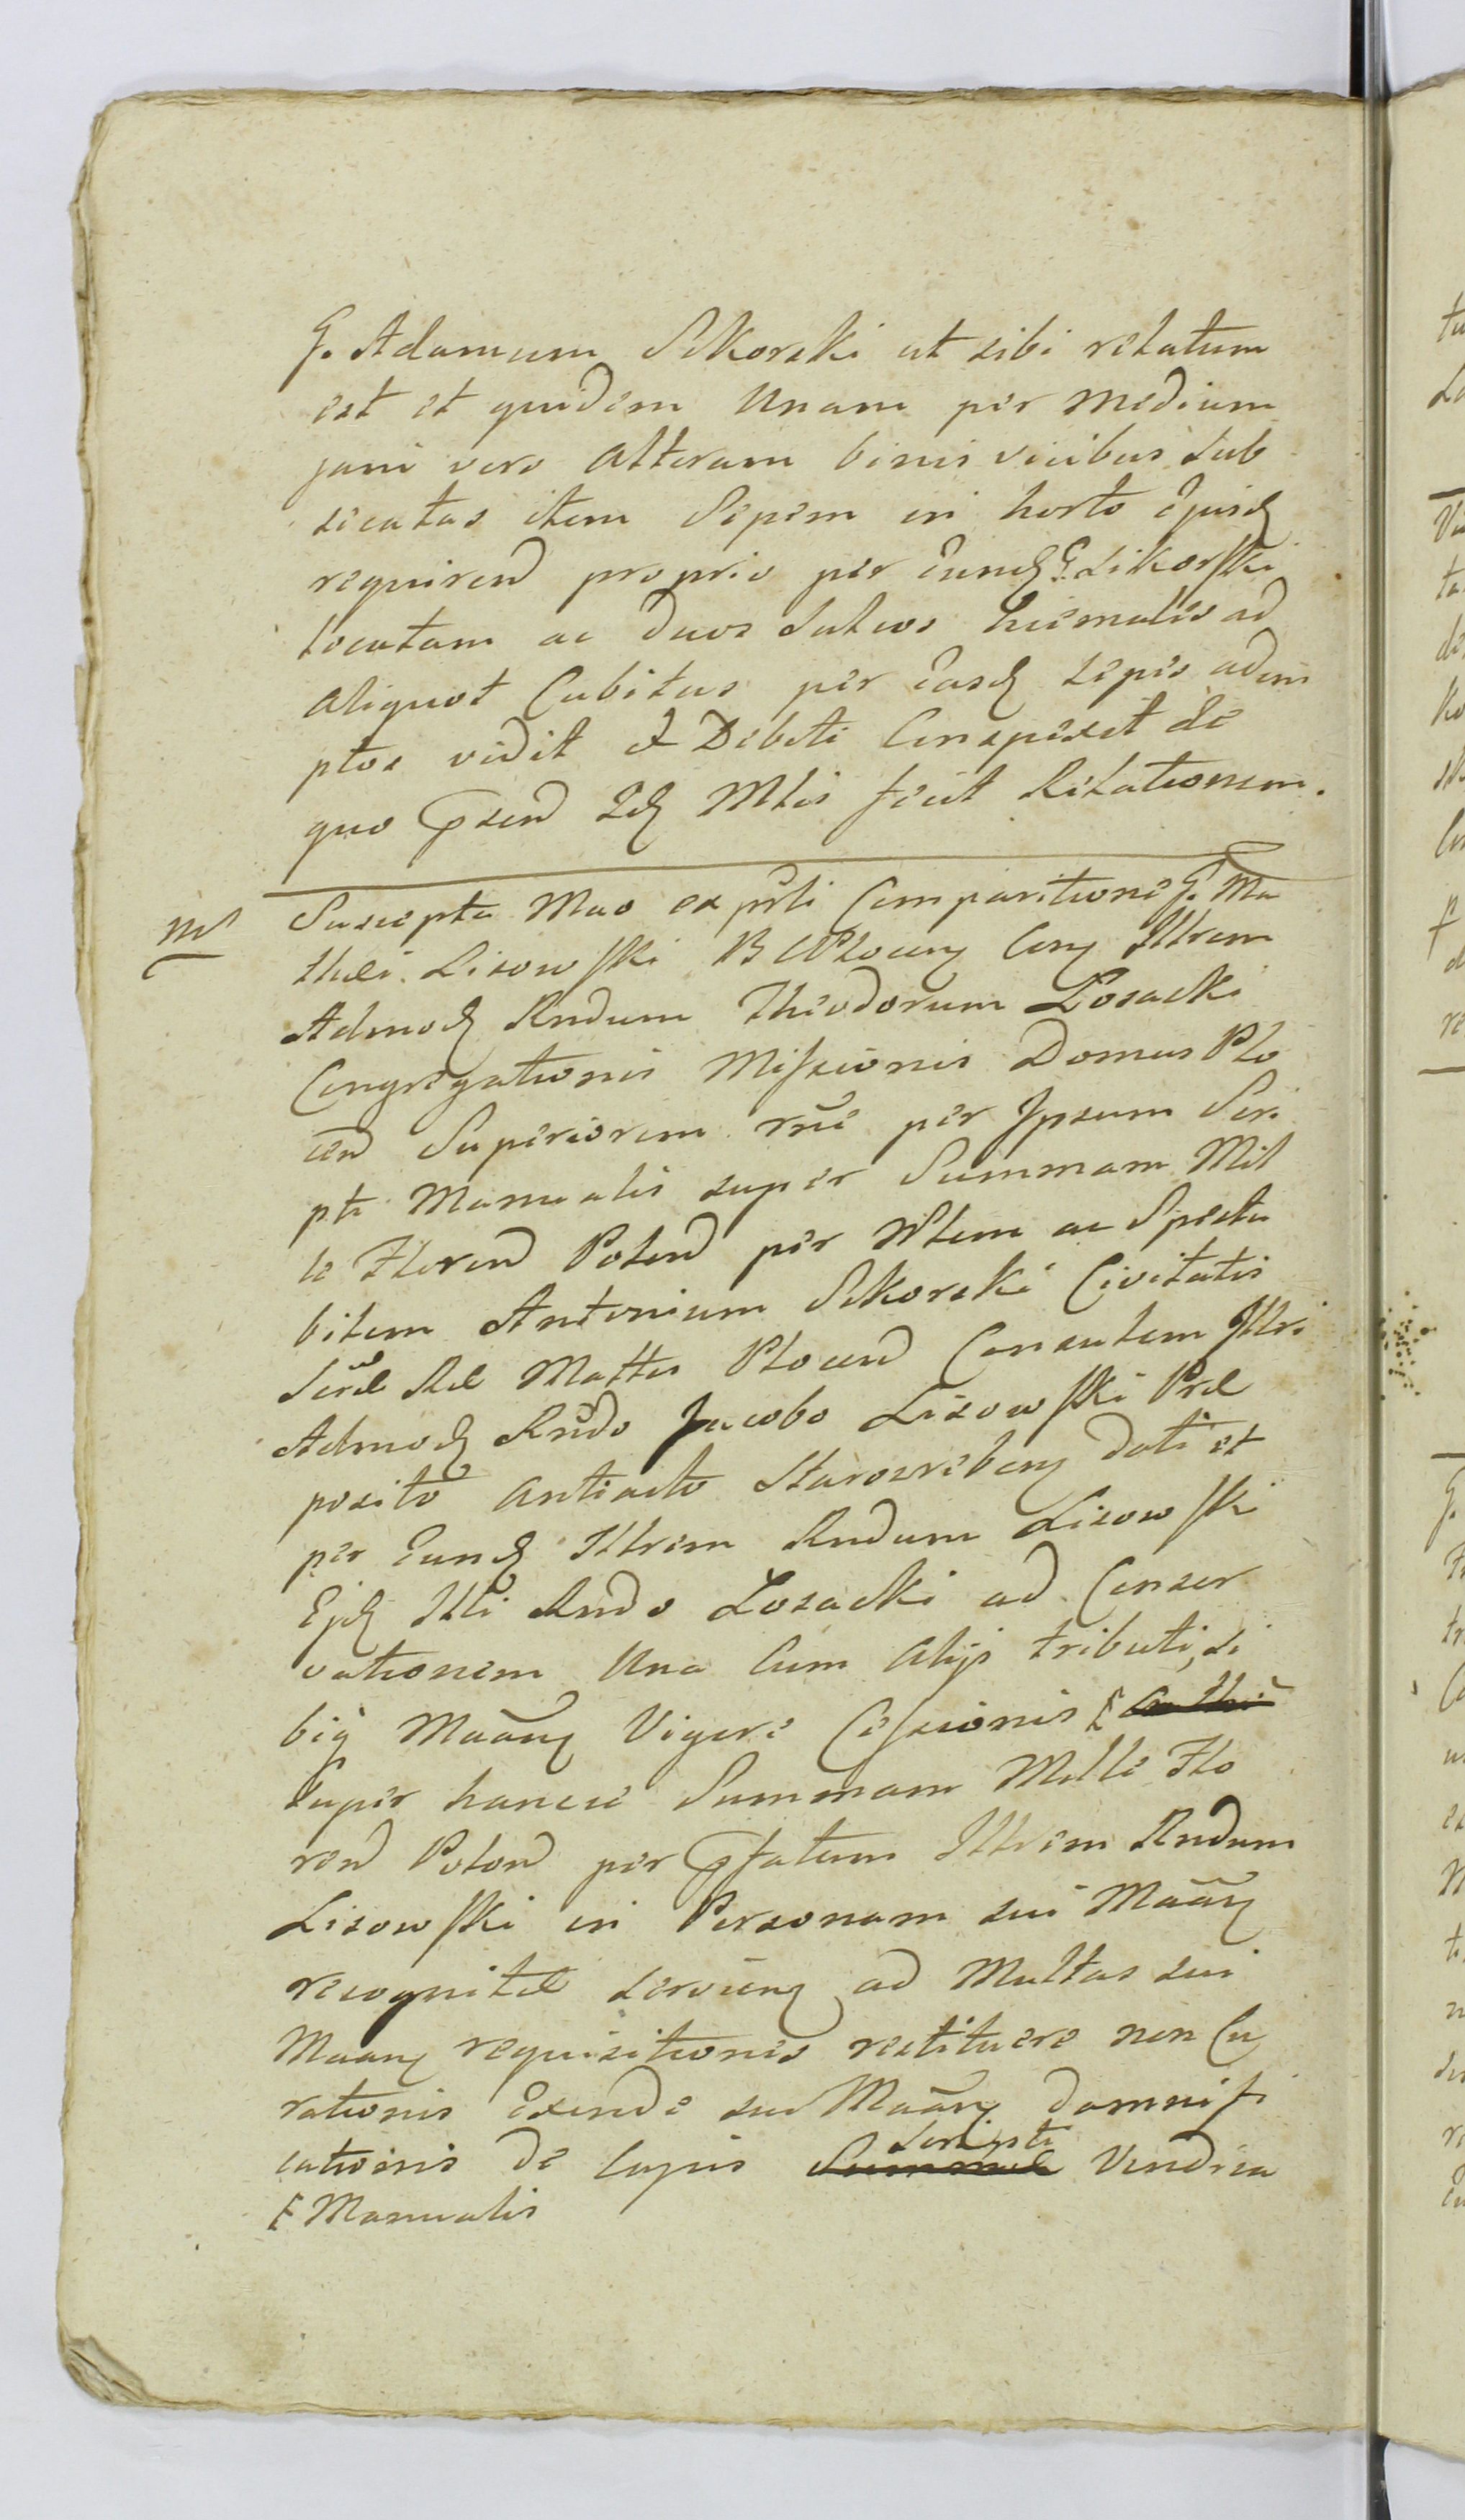 G. Adamum Sikorski ut sibi relatum
est et quidem Unam per medium
jam vero alteram binis vicibus sub
sicatas item Sepem in horto ejusd
requirend proprio per eund G. Sikorski
locatam ac duos sulcos hiemales ad
aliquot Cubitus per easd sepes adem
ptos vidit & Debite Conspexit de
quo psend Id Mlis fecit Relationem.
Suscepta Mao ex psti Comparitione G. Ma
thei Lisowski BCPlocen Con Illrem
Admod Rndum Theodorum Losacki
Congregationis Missionis Domus Plo
cen Superiorem rne per Ipsum Scri
pti Manualis super Summam Mil
le Floren Polon per Nblem ac Specta
bilem Antonium Sikorski Civitatis
Scre Rae Mattis Plocen Consulem Illri
Admod Rndo Jacobo Lisowski Prae
posito antiacto Staroxreben dati et
per Eund Illrem Rndum Lisowski
Ejd Illi Rndo Losacki ad Conser
vationem Una Cum alijs tributi, si
biq Maan Vigore Cessionis
super hance Summam Mille Flo
ren Polon per pfatum Illrem Rndum
Lisowski in Personam sui Maan
recognitae servien ad Multas sui
Maan requisitiones restituere non Cu
rationis Exinde sui Maan damnifi
cationis de cujus Scripti Summae Vendica
Manualis